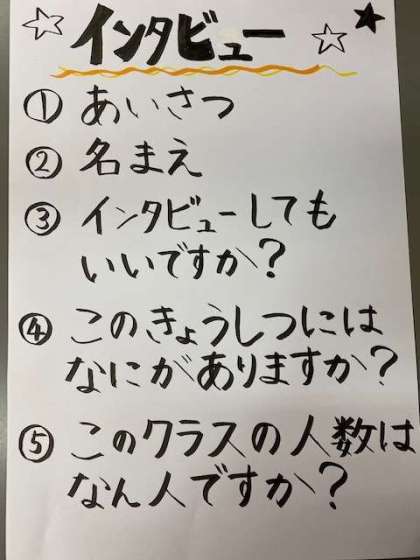 インタビュー
① あいさつ
② 名まえ
③ インタビューしても
いいですか?
④ このきょうしつには
なにがありますか?
⑤ このクラスの人数は
なん人ですか?